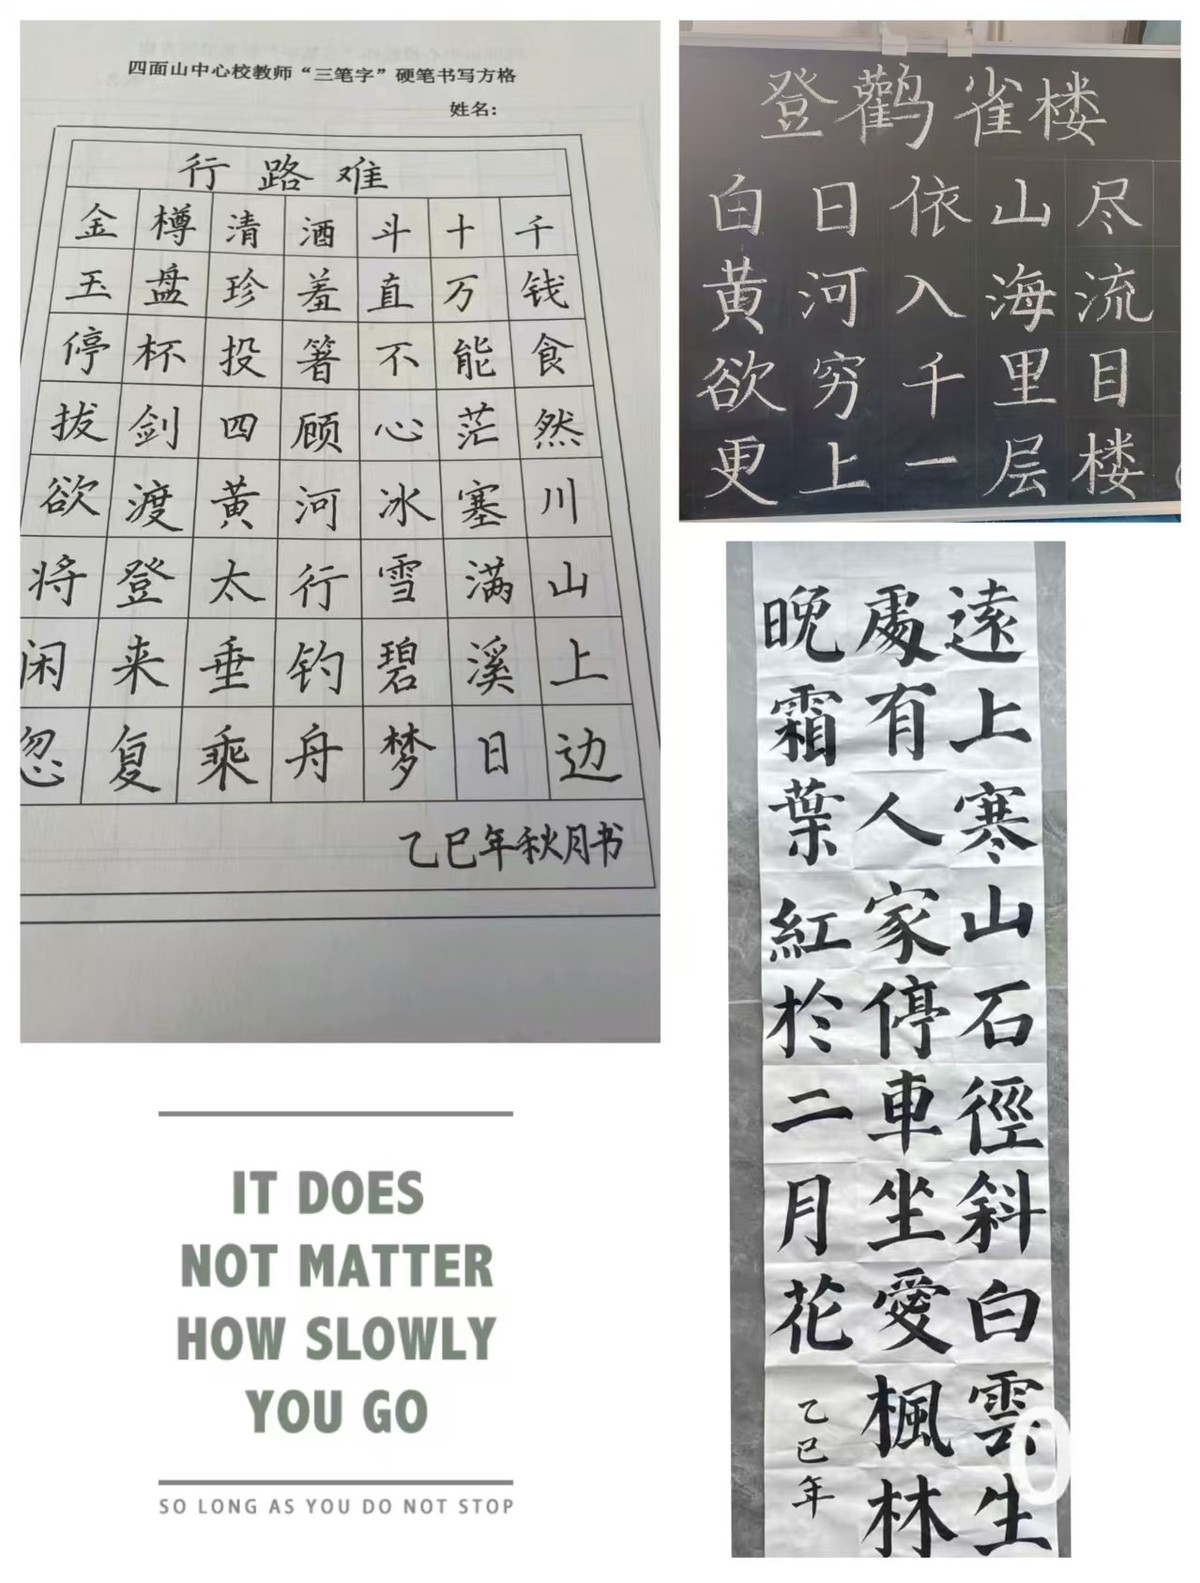 四面山中心校教师“三笔字”硬笔书写方格
姓名:
行路难
金樽清酒斗十千
玉盘珍羞直万钱
停杯投箸不能食
拔剑四顾心茫然
欲渡黄河冰塞川
将登太行雪满山
闲来垂钓碧溪上
忽复乘舟梦日边
乙巳年秋月书
登鹳雀楼
白日依山尽
黄河入海流
欲穷千里目
更上一层楼
遠上寒山石徑斜白雲生
處有人家停車坐愛楓林
晚霜葉紅於二月花
乙巳年
IT DOES
NOT MATTER
HOW SLOWLY
YOU GO
SO LONG AS YOU DO NOT STOP
0